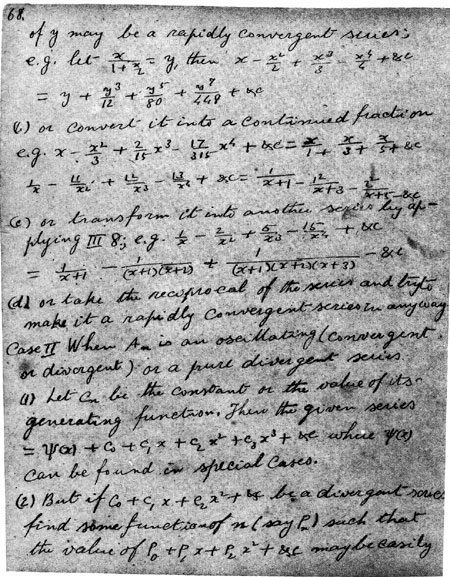 68.
of y may be a rapidly convergent series;
e.g. let x/(1+x/2) = y, then x - x²/2 + x³/3 - x⁴/4 + &c
= y + y³/12 + y⁵/80 + y⁷/448 + &c
(b) or convert it into a continued fraction
e.g. x - x²/3 + 2/15 x³ - 17/315 x⁴ + &c = x/1+ x/3+ x/5+ &c
1/x - 1!/x² + 2!/x³ - 3!/x⁴ + &c = 1/x+1 - 1²/x+3 - 2²/x+5 - &c
(c) or transform it into another series by ap-
plying III 8; e.g. 1/x - 2/x² + 5/x³ - 15/x⁴ + &c
= 1/(x+1) - 1/(x+1)(x+2) + 1/(x+1)(x+2)(x+3) - &c
(d) or take the reciprocal of the series and try to
make it a rapidly convergent series in any way
Case II When Aₙ is an oscillating (convergent
or divergent) or a pure divergent series
(1) Let Cₙ be the constant or the value of its
generating function. Then the given series
= ψ(x) + c₀ + c₁x + c₂x² + c₃x³ + &c where ψ(x)
can be found in special cases.
(2) But if c₀ + c₁x + c₂x² + &c be a divergent series
find some function of n (say Pₙ) such that
the value of P₀ + P₁x + P₂x² + &c may be easily